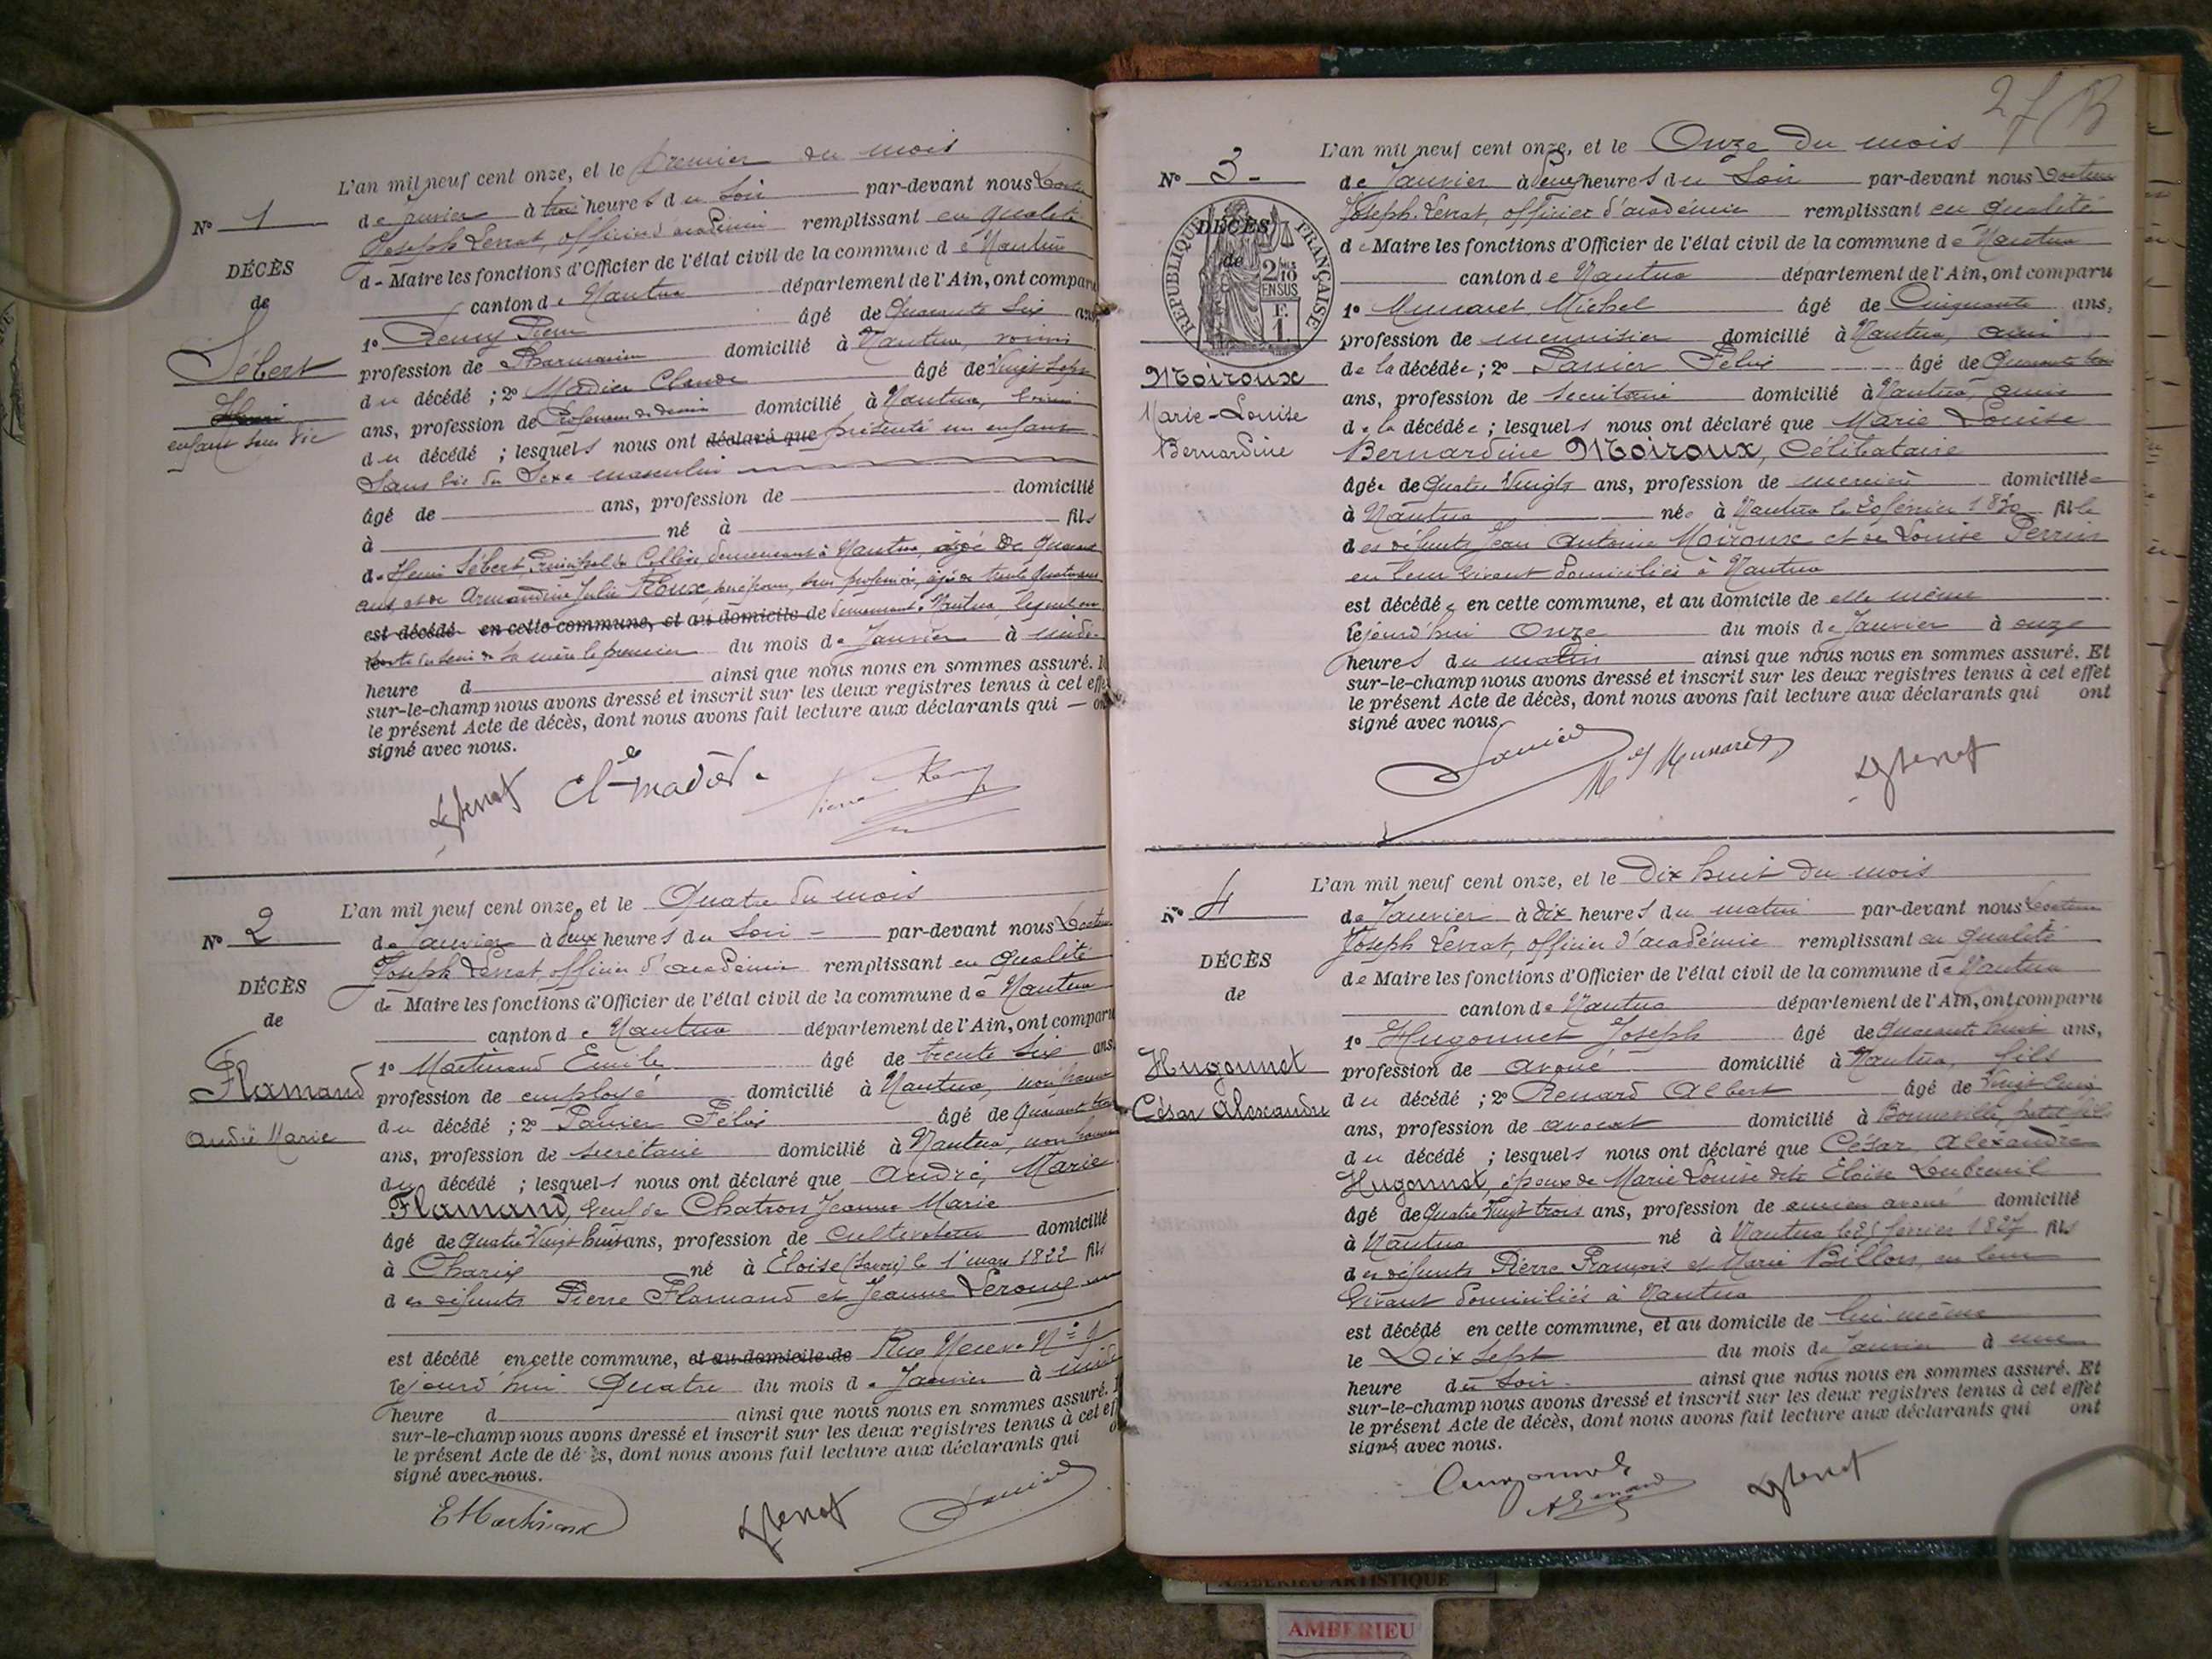 N° 1
DÉCÈS
de
Sébert
Henri
enfant sans vie
L'an mil neuf cent onze, et le premier du mois
de Janvier à trois heures du Soir par-devant nous Docteur
Joseph Levrat, officier d'académie remplissant en qualité
d - Maire les fonctions d'Officier de l'état civil de la commune de Nantua
canton de Nantua département de l'Ain, ont comparu
1° Remy Pierre âgé de Quarante Six ans,
profession de Pharmacien domicilié à Nantua, voisin
du décédé ; 2° Madier Claude âgé de Vingt Sept
ans, profession de Professeur de dessin domicilié à Nantua, voisin
du décédé ; lesquels nous ont déclaré que présenté un enfant
Sans vie du Sexe masculin
âgé de ans, profession de domicilié
à né à fils
de Henri Sébert, Principal du Collège demeurant à Nantua, âgé de quarante
ans, et de Armandine Julie Roux, son épouse, sans profession, âgée de trente quatre ans
est décédé en cette commune, et au domicile de demeurant à Nantua, lequel est
sorti du sein de sa mère le premier du mois de Janvier à midi
heure d ainsi que nous nous en sommes assuré. Et
sur-le-champ nous avons dressé et inscrit sur les deux registres tenus à cet effet
le présent Acte de décès, dont nous avons fait lecture aux déclarants qui — ont
signé avec nous.
JLevrat Cl-Madier Pierre Remy
N° 2
DÉCÈS
de
Flamand
André Marie
L'an mil neuf cent onze, et le Quatre du mois
de Janvier à deux heures du Soir - par-devant nous Docteur
Joseph Levrat, officier d'académie remplissant en qualité
de Maire les fonctions d'Officier de l'état civil de la commune de Nantua
canton de Nantua département de l'Ain, ont comparu
1° Martinand Emile âgé de trente Six ans,
profession de employé domicilié à Nantua, non parent
du décédé ; 2° Panier Félix âgé de Quarante trois
ans, profession de secrétaire domicilié à Nantua, non parent
du décédé ; lesquels nous ont déclaré que André, Marie
Flamand, veuf de Chatron Jeanne Marie
âgé de Quatre Vingt huit ans, profession de cultivateur domicilié
à Charix né à Eloise (Savoie) le 1er mars 1822 fils
des défunts Pierre Flamand et Jeanne
est décédé en cette commune, et au domicile de Rue Neuve N° 9
lejourd'hui Quatre du mois de Janvier à midi
heure d ainsi que nous nous en sommes assuré. Et
sur-le-champ nous avons dressé et inscrit sur les deux registres tenus à cet effet
le présent Acte de décès, dont nous avons fait lecture aux déclarants qui ont
signé avec nous.
EMartinand JLevrat Panier
27
N° 3 -
DÉCÈS
de
RÉPUBLIQUE FRANÇAISE
2/10
EN SUS
1 F.
Moiroux
Marie-Louise
Bernardine
L'an mil neuf cent onze, et le Onze du mois
de Janvier à deux heures du Soir par-devant nous Docteur
Joseph Levrat, officier d'académie remplissant en qualité
de Maire les fonctions d'Officier de l'état civil de la commune de Nantua
canton de Nantua département de l'Ain, ont comparu
1° Munaret Michel âgé de Cinquante ans,
profession de menuisier domicilié à Nantua, ami
de la décédée ; 2° Panier Félix âgé de Quarante trois
ans, profession de secrétaire domicilié à Nantua, ami
de la décédée ; lesquels nous ont déclaré que Marie Louise
Bernardine Moiroux, Célibataire
âgée de Quatre Vingts ans, profession de mercière domiciliée
à Nantua née à Nantua le 20 février 1830 fille
des défunts Jean Antoine Moiroux et de Louise Perrin
en leur vivant domiciliés à Nantua
est décédée en cette commune, et au domicile de elle même
lejourd'hui Onze du mois de Janvier à onze
heures du matin ainsi que nous nous en sommes assuré. Et
sur-le-champ nous avons dressé et inscrit sur les deux registres tenus à cet effet
le présent Acte de décès, dont nous avons fait lecture aux déclarants qui ont
signé avec nous.
Panier Munaret JLevrat
N° 4
DÉCÈS
de
Hugonnet
César Alexandre
L'an mil neuf cent onze, et le Dix huit du mois
de Janvier à dix heures du matin par-devant nous Docteur
Joseph Levrat, officier d'académie remplissant en qualité
de Maire les fonctions d'Officier de l'état civil de la commune de Nantua
canton de Nantua département de l'Ain, ont comparu
1° Hugonnet Joseph âgé de Quarante huit ans,
profession de avoué domicilié à Nantua, fils
du décédé ; 2° Renard Albert âgé de Vingt Cinq
ans, profession de avocat domicilié à Bonneville, petit fils
du décédé ; lesquels nous ont déclaré que César, Alexandre
Hugonnet, époux de Marie Louise dite Eloïse Dubreuil
âgé de Quatre Vingt trois ans, profession de ancien avoué domicilié
à Nantua né à Nantua le février 1827 fils
des défunts Pierre François et Marie Billon, en leur
vivant domiciliés à Nantua
est décédé en cette commune, et au domicile de lui même
le Dix Sept du mois de Janvier à une
heure du Soir - ainsi que nous nous en sommes assuré. Et
sur-le-champ nous avons dressé et inscrit sur les deux registres tenus à cet effet
le présent Acte de décès, dont nous avons fait lecture aux déclarants qui ont
signé avec nous.
Hugonnet ARenard JLevrat
AMBERIEU ARTISTIQUE
AMBERIEU